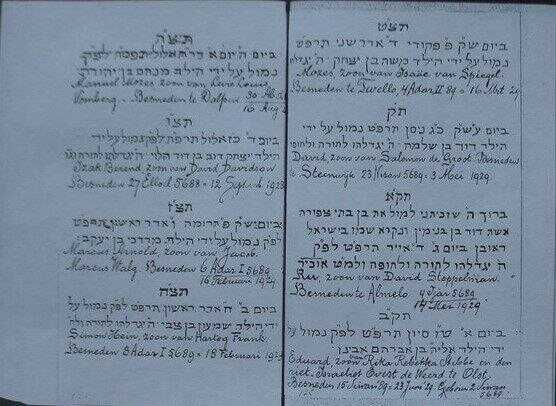 תצ״ה
ביום ה׳ יום א׳ דר״ח אלול תרפ״ח לפ״ק
נמול על ידי הילד מנחם בן יהודה
Manuel Mozes zoon van Levie Louis
Vomberg - Besneden te Dalfsen 16 Aug
תצ״ו
ביום ד׳ כ״ז אלול תרפ״ח לפ״ק נמול על ידי
הילד יצחק דוב בן דוד הלוי ה׳ יגדלהו לתורה
Izak Berend zoon van David Davidson
Besneden 27 Elloel 5688 - 12 Septemb 1928
תצ״ז
ביום ש״ק פ׳ תרומה ו׳ אדר ראשון תרפ״ט
לפ״ק נמול על ידי הילד מרדכי בן יעקב
Marcus Arnold zoon van Jacob
Marcus Besneden 6 Adar I 5689
16 Februari 1929
תצ״ח
ביום ב׳ ח׳ אדר ראשון תרפ״ט לפ״ק נמול על
ידי הילד שמעון בן צבי ה׳ יגדלהו לתורה
Simon zoon van Hartog Frank
Besneden 8 Adar I 5689 - 18 Februari 1929
תצ״ט
ביום ש״ק פ׳ פקודי ד׳ אדר שני תרפ״ט
נמול על ידי הילד משה בן יצחק ה׳ יגדלהו
Mozes zoon van Isaac van Spiegel
Besneden te Twello 4 Adar II 89 - 16 Mrt 29
ת״ק
ביום עש״ק כ״ג ניסן תרפ״ט נמול על ידי
הילד דוד בן שלמה ה׳ יגדלהו לתורה ולחופה
David zoon van Salomon de Groot Besneden
te Steenwijk 23 Nissan 5689 - 3 Mei 1929
תק״א
ברוך ה׳ שזכיתני למול את בן בתי צפורה
אשת דוד בן בנימין ונקרא שמו בישראל
ראובן ביום ג׳ ד׳ אייר תרפ״ט לפ״ק
ה׳ יגדלהו לתורה ולחופה ולמ״ט
zoon van David Stoppelman
Besneden te Almelo 4 Ijar 5689
14 Mei 1929
תק״ב
ביום א׳ ט״ו סיון תרפ״ט לפ״ק נמול על
ידי הילד אליה בן אברהם אבינו
Eduard zoon van Rika Rebekka en den
niet Israeliet Evert de Weerd te Olst
Besneden 15 Siwan 89 - 23 Juni 29 Geboren 2 Siwan
5689